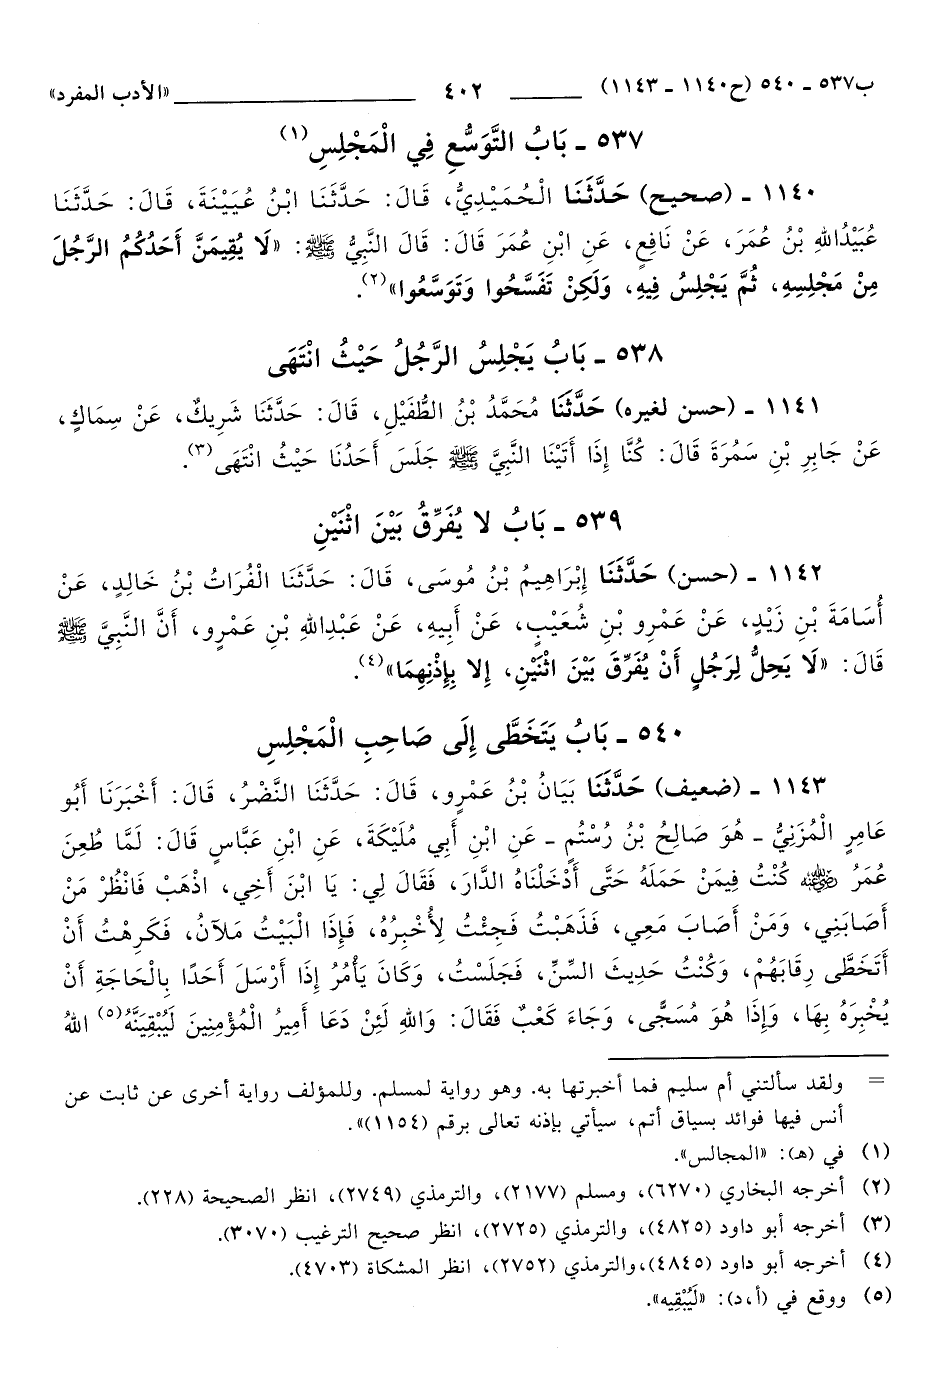 ب٥٣٧ ـ ٥٤٠ (ح١١٤٠ ـ ١١٤٣) ٤٠٢ «الأدب المفرد»
٥٣٧ ـ بَابُ التَّوَسُّعِ فِي الْمَجْلِسِ(١)
١١٤٠ ـ (صحيح) حَدَّثَنَا الْحُمَيْدِيُّ، قَالَ: حَدَّثَنَا ابْنُ عُيَيْنَةَ، قَالَ: حَدَّثَنَا
عُبَيْدُاللهِ بْنُ عُمَرَ، عَنْ نَافِعٍ، عَنِ ابْنِ عُمَرَ قَالَ: قَالَ النَّبِيُّ ﷺ: «لَا يُقِيمَنَّ أَحَدُكُمُ الرَّجُلَ
مِنْ مَجْلِسِهِ، ثُمَّ يَجْلِسُ فِيهِ، وَلَكِنْ تَفَسَّحُوا وَتَوَسَّعُوا»(٢).
٥٣٨ ـ بَابُ يَجْلِسُ الرَّجُلُ حَيْثُ انْتَهَى
١١٤١ ـ (حسن لغيره) حَدَّثَنَا مُحَمَّدُ بْنُ الطُّفَيْلِ، قَالَ: حَدَّثَنَا شَرِيكٌ، عَنْ سِمَاكٍ،
عَنْ جَابِرِ بْنِ سَمُرَةَ قَالَ: كُنَّا إِذَا أَتَيْنَا النَّبِيَّ ﷺ جَلَسَ أَحَدُنَا حَيْثُ انْتَهَى(٣).
٥٣٩ ـ بَابُ لا يُفَرِّقُ بَيْنَ اثْنَيْنِ
١١٤٢ ـ (حسن) حَدَّثَنَا إِبْرَاهِيمُ بْنُ مُوسَى، قَالَ: حَدَّثَنَا الْفُرَاتُ بْنُ خَالِدٍ، عَنْ
أُسَامَةَ بْنِ زَيْدٍ، عَنْ عَمْرِو بْنِ شُعَيْبٍ، عَنْ أَبِيهِ، عَنْ عَبْدِاللهِ بْنِ عَمْرٍو، أَنَّ النَّبِيَّ ﷺ
قَالَ: «لَا يَحِلُّ لِرَجُلٍ أَنْ يُفَرِّقَ بَيْنَ اثْنَيْنِ، إِلا بِإِذْنِهِمَا»(٤).
٥٤٠ ـ بَابُ يَتَخَطَّى إِلَى صَاحِبِ الْمَجْلِسِ
١١٤٣ ـ (ضعيف) حَدَّثَنَا بَيَانُ بْنُ عَمْرٍو، قَالَ: حَدَّثَنَا النَّضْرُ، قَالَ: أَخْبَرَنَا أَبُو
عَامِرٍ الْمُزَنِيُّ ـ هُوَ صَالِحُ بْنُ رُسْتُمٍ ـ عَنِ ابْنِ أَبِي مُلَيْكَةَ، عَنِ ابْنِ عَبَّاسٍ قَالَ: لَمَّا طُعِنَ
عُمَرُ رضي الله عنه كُنْتُ فِيمَنْ حَمَلَهُ حَتَّى أَدْخَلْنَاهُ الدَّارَ، فَقَالَ لِي: يَا ابْنَ أَخِي، اذْهَبْ فَانْظُرْ مَنْ
أَصَابَنِي، وَمَنْ أَصَابَ مَعِي، فَذَهَبْتُ فَجِئْتُ لِأُخْبِرَهُ، فَإِذَا الْبَيْتُ مَلآنُ، فَكَرِهْتُ أَنْ
أَتَخَطَّى رِقَابَهُمْ، وَكُنْتُ حَدِيثَ السِّنِّ، فَجَلَسْتُ، وَكَانَ يَأْمُرُ إِذَا أَرْسَلَ أَحَدًا بِالْحَاجَةِ أَنْ
يُخْبِرَهُ بِهَا، وَإِذَا هُوَ مُسَجًّى، وَجَاءَ كَعْبٌ فَقَالَ: وَاللهِ لَئِنْ دَعَا أَمِيرُ الْمُؤْمِنِينَ لَيُبْقِيَنَّهُ(٥) اللهُ
= ولقد سألتني أم سليم فما أخبرتها به. وهو رواية لمسلم. وللمؤلف رواية أخرى عن ثابت عن
أنس فيها فوائد بسياق أتم، سيأتي بإذنه تعالى برقم (١١٥٤)».
(١) في (هـ): «المجالس».
(٢) أخرجه البخاري (٦٢٧٠)، ومسلم (٢١٧٧)، والترمذي (٢٧٤٩)، انظر الصحيحة (٢٢٨).
(٣) أخرجه أبو داود (٤٨٢٥)، والترمذي (٢٧٢٥)، انظر صحيح الترغيب (٣٠٧٠).
(٤) أخرجه أبو داود (٤٨٤٥)،والترمذي (٢٧٥٢)، انظر المشكاة (٤٧٠٣).
(٥) ووقع في (أ،د): «لَيُبْقِيه».